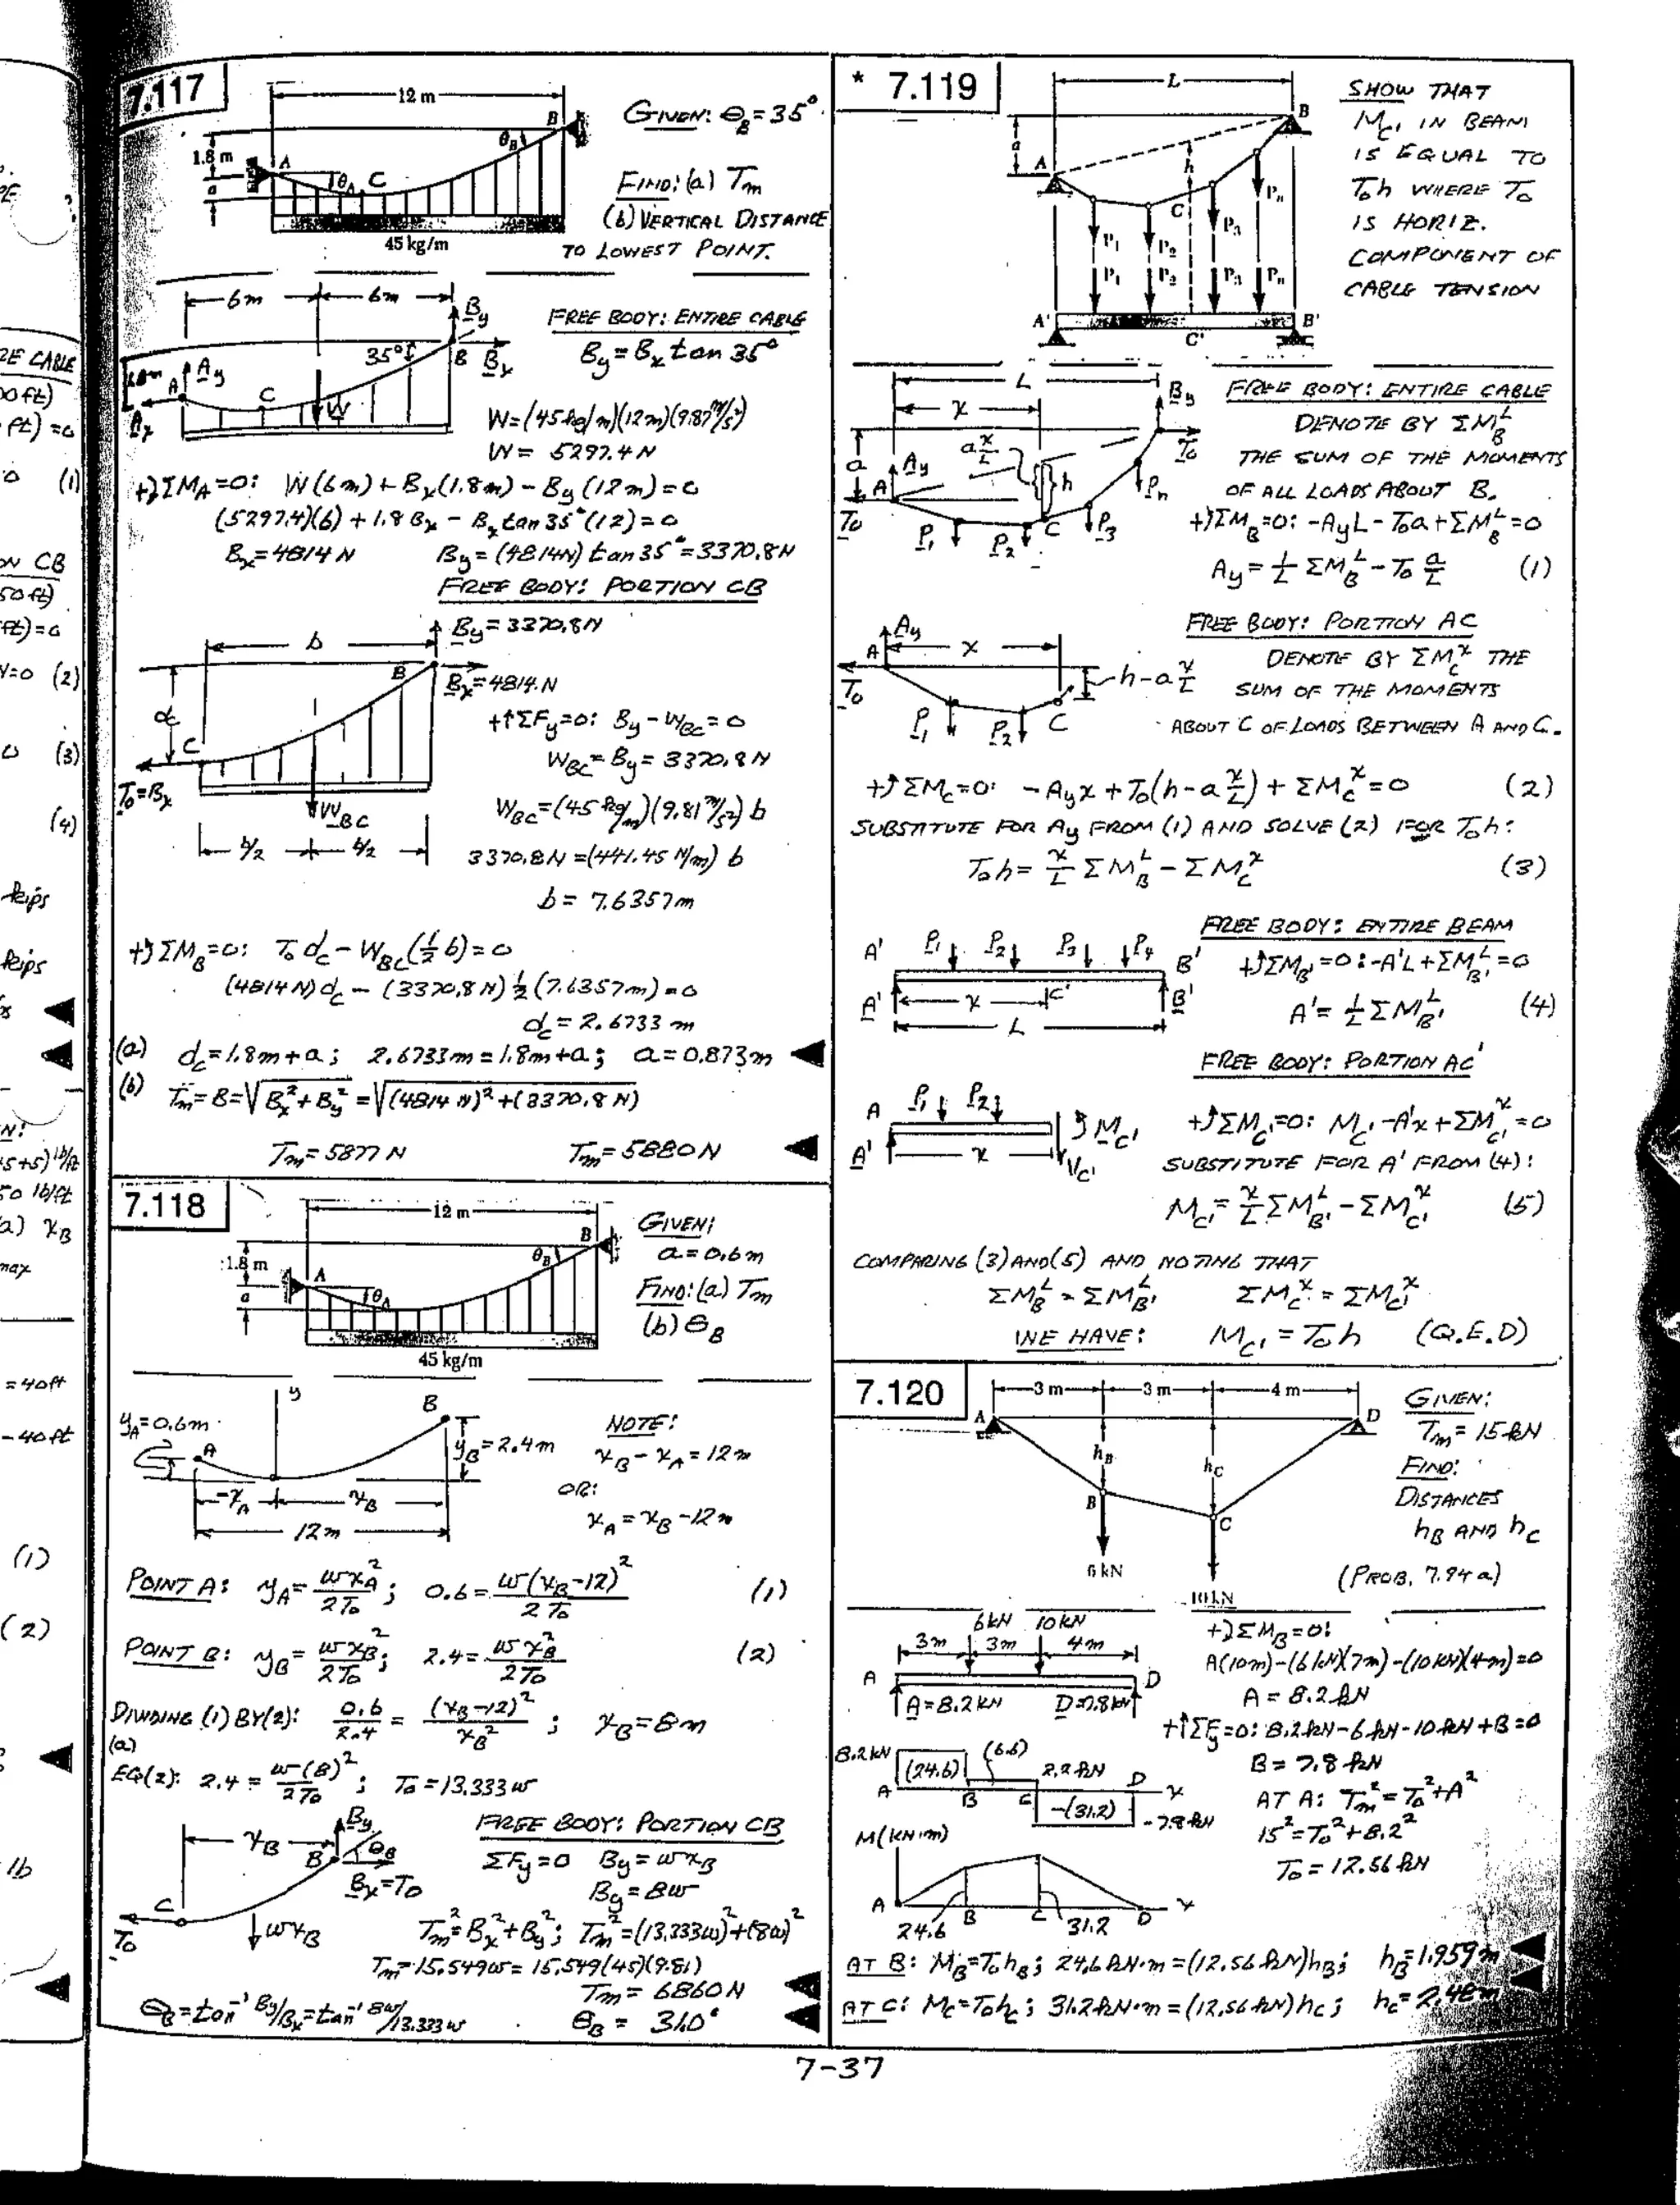 7.117
12 m
B
θB
1.8 m
A
θA
C
a
45 kg/m
GIVEN: θB = 35°
FIND: (a) Tm
(b) VERTICAL DISTANCE
TO LOWEST POINT.
6m
6m
By
35°
B
Bx
Ay
A
C
W
Ax
FREE BODY: ENTIRE CABLE
By = Bx tan 35°
W = (45 kg/m)(12m)(9.81 m/s²)
W = 5297.4 N
+⤸ΣMA=0: W(6m) + Bx(1.8m) - By(12m) = 0
(5297.4)(6) + 1.8 Bx - Bx tan 35°(12) = 0
Bx = 4814 N By = (4814N) tan 35° = 3370.8N
FREE BODY: PORTION CB
b
By = 3370.8N
B
Bx = 4814 N
dc
C
T0 = Bx
WBC
b/2
b/2
+↑ΣFy=0: By - WBC = 0
WBC = By = 3370.8 N
WBC = (45 kg/m)(9.81 m/s²) b
3370.8N = (441.45 N/m) b
b = 7.6357m
+⤴ΣMB=0: T0 dc - WBC(½ b) = 0
(4814 N) dc - (3370.8 N) ½ (7.6357m) = 0
dc = 2.6733 m
(a) dc = 1.8m + a ; 2.6733m = 1.8m + a ; a = 0.873m
(b) Tm = B = √Bx² + By² = √(4814 N)² + (3370.8 N)
Tm = 5877 N Tm = 5880 N
7.118
12 m
B
θB
1.8 m
A
θA
a
45 kg/m
GIVEN:
a = 0.6m
FIND: (a) Tm
(b) θB
y
B
yA = 0.6m
A
yB = 2.4m
-xA
xB
12m
NOTE:
xB - xA = 12 m
OR:
xA = xB - 12 m
POINT A: yA = wxA²/2T0 ; 0.6 = w(xB-12)²/2T0 (1)
POINT B: yB = wxB²/2T0 ; 2.4 = wxB²/2T0 (2)
DIVIDING (1) BY (2): 0.6/2.4 = (xB-12)²/xB² ; xB = 8m
(a)
EQ(2): 2.4 = w(8)²/2T0 ; T0 = 13.333w
xB
By
B
θB
Bx = T0
C
T0
wxB
FREE BODY: PORTION CB
ΣFy = 0 By = wxB
By = 8w
Tm² = Bx² + By² ; Tm² = (13.333w)² + (8w)²
Tm = 15.549w = 15.549(45)(9.81)
Tm = 6860 N
θB = tan⁻¹ By/Bx = tan⁻¹ 8w/13.333w θB = 31.0°
* 7.119
L
B
a
A
h
C
P1
P2
P3
Pn
P1
P2
P3
Pn
A'
B'
C'
SHOW THAT
MC' IN BEAM
IS EQUAL TO
T0h WHERE T0
IS HORIZ.
COMPONENT OF
CABLE TENSION
L
x
By
a x/L
a
Ay
A
h
T0
T0
P1
P2
C
P3
Pn
FREE BODY: ENTIRE CABLE
DENOTE BY ΣMB^L
THE SUM OF THE MOMENTS
OF ALL LOADS ABOUT B.
+⤴ΣMB=0: -AyL - T0a + ΣMB^L = 0
Ay = 1/L ΣMB^L - T0 a/L (1)
Ay
A
x
T0
h - a x/L
P1
P2
C
FREE BODY: PORTION AC
DENOTE BY ΣMC^x THE
SUM OF THE MOMENTS
ABOUT C OF LOADS BETWEEN A AND C.
+⤴ΣMC=0: -Ayx + T0(h - a x/L) + ΣMC^x = 0 (2)
SUBSTITUTE FOR Ay FROM (1) AND SOLVE (2) FOR T0h:
T0h = x/L ΣMB^L - ΣMC^x (3)
A'
P1
P2
P3
P4
B'
A'
x
C'
B'
L
FREE BODY: ENTIRE BEAM
+⤴ΣMB'=0: -A'L + ΣMB'^L = 0
A' = 1/L ΣMB'^L (4)
FREE BODY: PORTION AC'
A
P1
P2
MC'
A'
x
VC'
+⤴ΣMC'=0: MC' - A'x + ΣMC'^x = 0
SUBSTITUTE FOR A' FROM (4):
MC' = x/L ΣMB'^L - ΣMC'^x (5)
COMPARING (3) AND (5) AND NOTING THAT
ΣMB^L = ΣMB'^L ΣMC^x = ΣMC'^x
WE HAVE: MC' = T0h (Q.E.D)
7.120
3 m
3 m
4 m
A
D
hB
hC
B
C
6 kN
10 kN
GIVEN:
Tm = 15 kN
FIND:
DISTANCES
hB AND hC
(PROB. 7.94 a)
6kN 10kN
3m
3m
4m
A
D
A = 8.2kN
D = 7.8kN
+⤸ΣMB=0:
A(10m) - (6 kN)(7m) - (10 kN)(4m) = 0
A = 8.2 kN
+↑ΣFy=0: 8.2kN - 6 kN - 10 kN + B = 0
B = 7.8 kN
8.2kN
(24.6)
(6.6)
2.2 kN
A
B
C
D
x
-(31.2)
-7.8 kN
AT A: Tm² = T0² + A²
15² = T0² + 8.2²
T0 = 12.56 kN
M(kN·m)
A
24.6
B
C
31.2
D
x
AT B: MB = T0hB ; 24.6 kN·m = (12.56 kN)hB ; hB = 1.959m
AT C: MC = T0hC ; 31.2 kN·m = (12.56 kN)hC ; hC = 2.48m
7-37
RE CABLE
(1)
ON CB
(2)
(3)
(4)
kips
kips
50 lb/ft
(a) xB
max
= 40ft
- 40 ft
(1)
(2)
lb